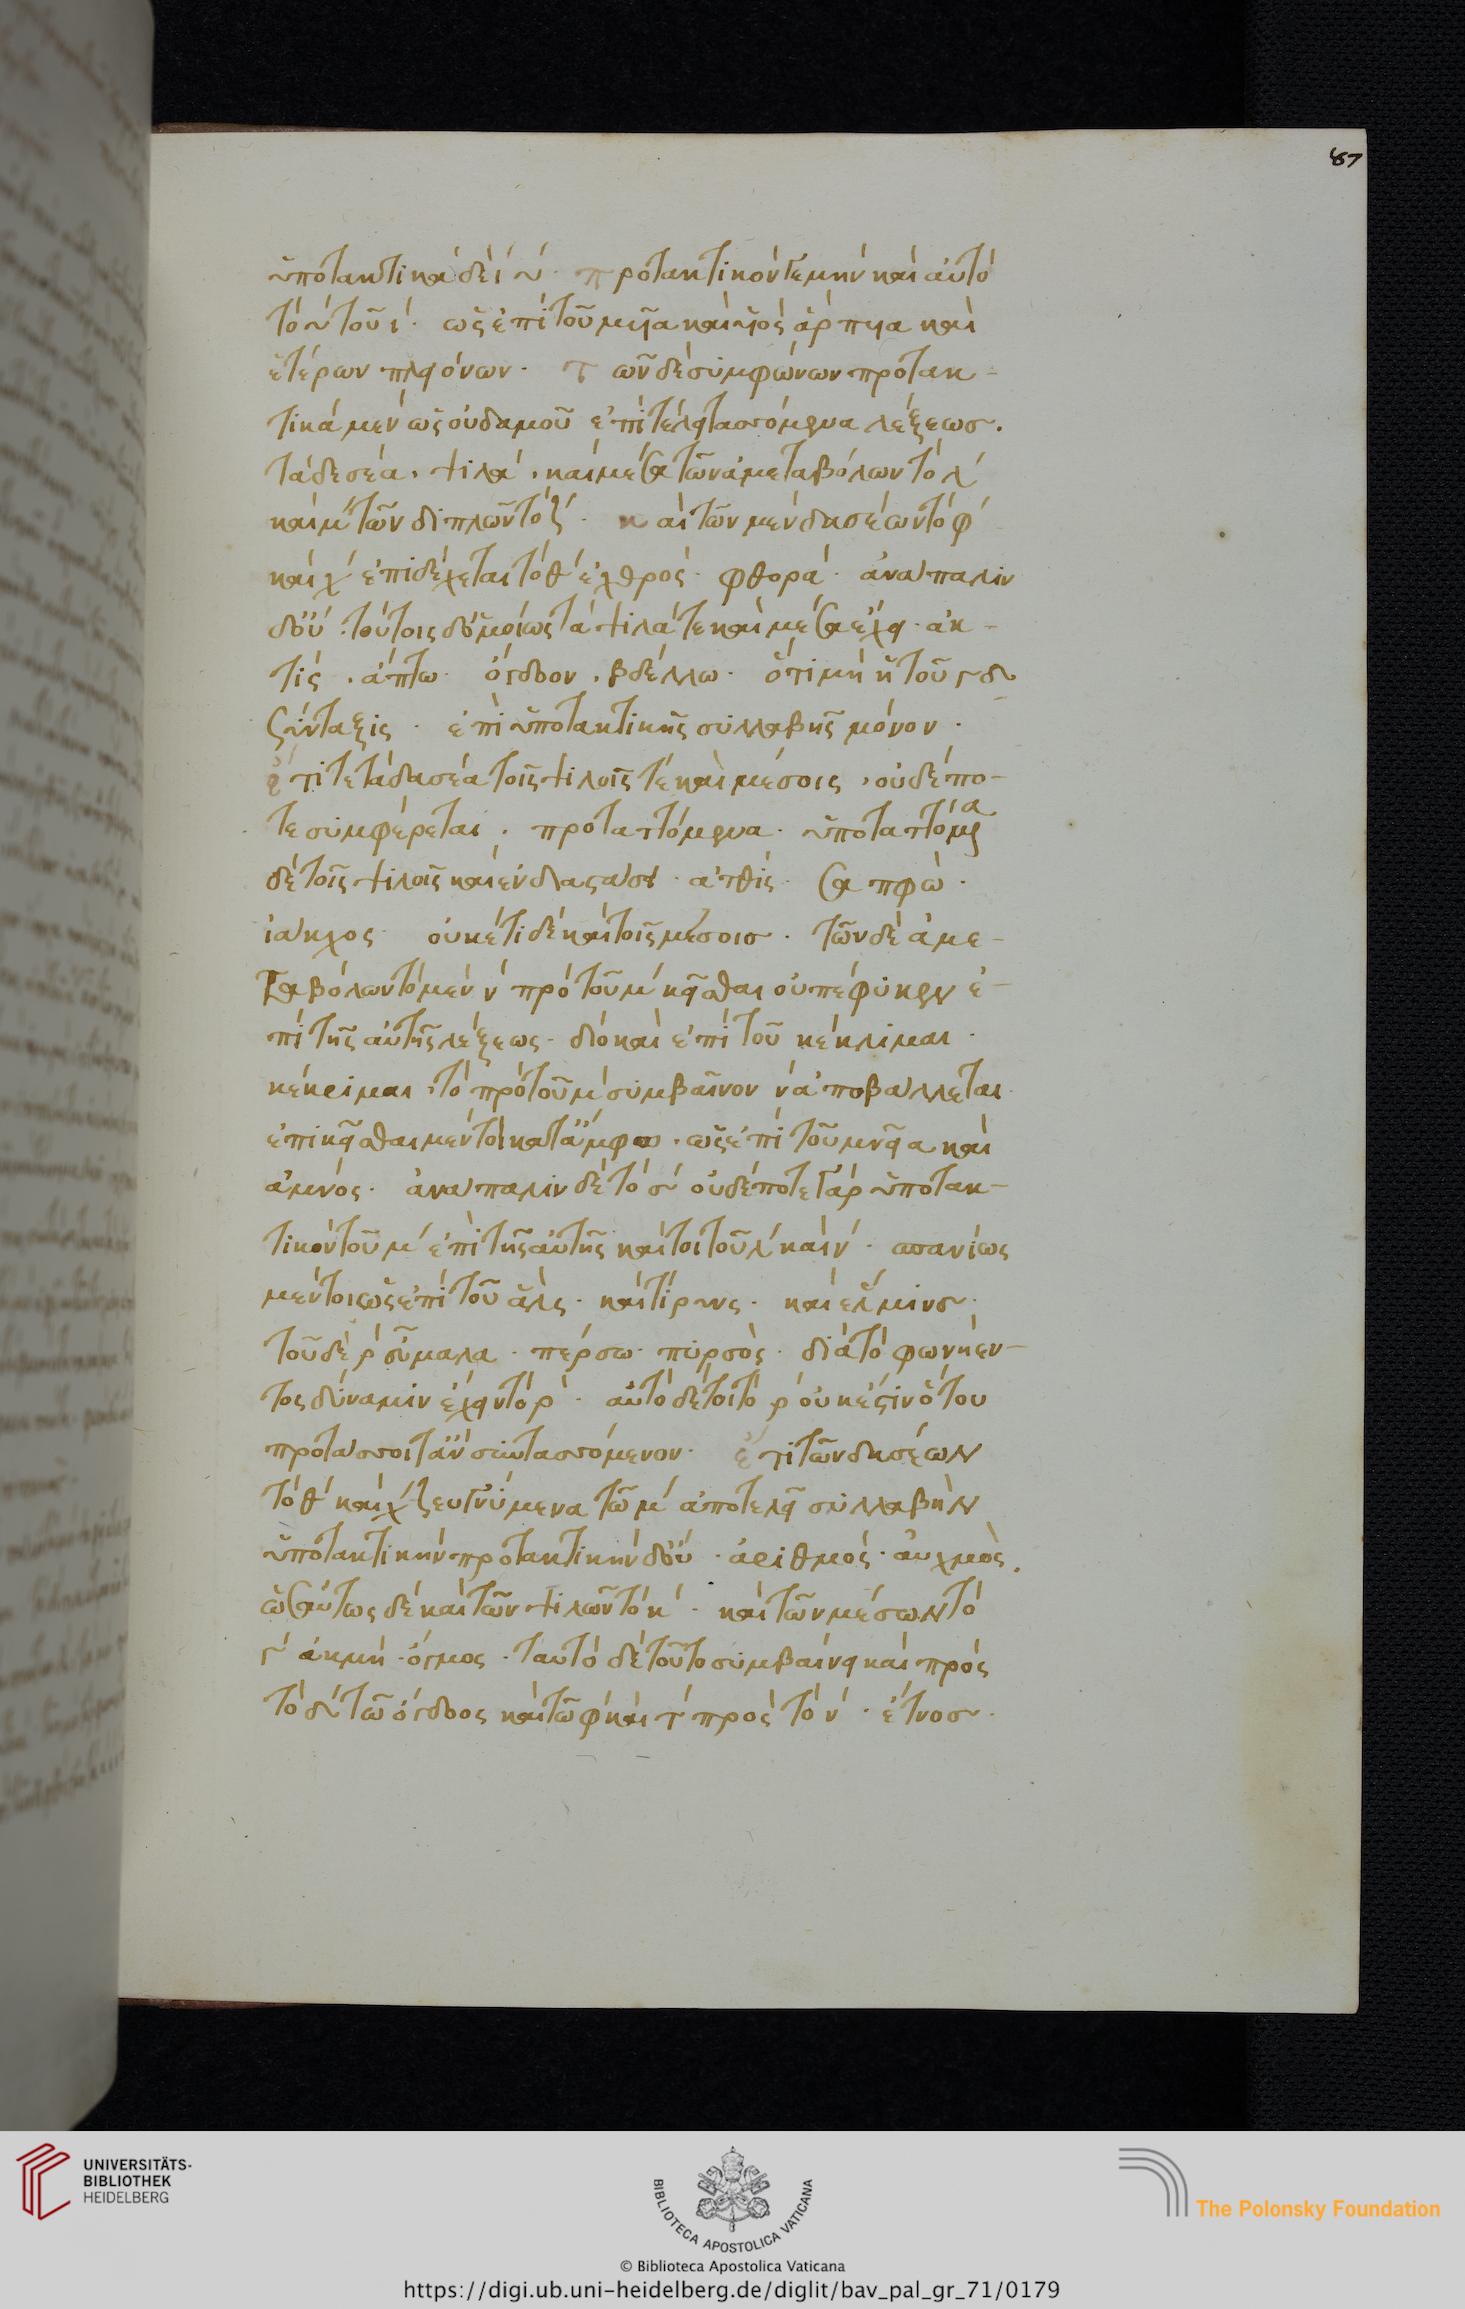 87
ὑποτακτικὰ δὲ ι υ· προτακτικόν γε μὴν καὶ αὐτὸ
τὸ υ τοῦ ι· ὡς ἐπὶ τοῦ μυῖα καὶ υἱὸς ἅρπυια καὶ
ἑτέρων πλειόνων· τῶν δὲ συμφώνων προτακ-
τικὰ μὲν ὡς οὐδαμοῦ ἐπιτελει λέξεως.
τὰ δασέα. ψιλὰ. καὶ μέσα τῶν ἀμεταβόλων τὸ λ
καὶ μ τῶν διπλῶν τὸ ξ· καὶ τῶν μὲν δασέων τὸ φ
καὶ χ ἐπιδέχεται τὸ θ ἐχθρός· φθορά· ἀνάπαλιν
δ' οὔ· τούτοις δ' ὁμοίως τὰ ψιλά τε καὶ μέσα ἔχει· ἀκ-
τίς. ἅπτω· ὄγδοον. βδέλλω· ὅτι μὴ ἡ τοῦ γ δ
σύνταξις· ἐπὶ ὑποτακτικῆς συλλαβῆς μόνον·
ἔτι τε τὰ δασέα τοῖς ψιλοῖς τὲ καὶ μέσοις, οὐδέπο-
τε συμφέρεται. προταττόμενα· ὑποταττόμενα
δὲ τοῖς ψιλοῖς καὶ ἐν διαστάσει· ἀτθίς· Σαπφώ·
ἴακχος· οὐκέτι δὲ καὶ τοῖς μέσοις. τῶν δὲ ἀμε-
ταβόλων τὸ μὲν ν πρὸ τοῦ μ κεῖσθαι οὐ πέφυκεν ἐ-
πὶ τῆς αὐτῆς λέξεως· διὸ καὶ ἐπὶ τοῦ κέκλιμαι·
κέκριμαι. τὸ πρὸ τοῦ μ συμβαῖνον ν ἀποβάλλεται·
ἐπικεῖσθαι μέντοι κατ' ἄμφω. ὡς ἐπὶ τοῦ μνεῖα καὶ
ἀμνός· ἀνάπαλιν δὲ τὸ σ οὐδέποτε γὰρ ὑποτακ-
τικὸν τοῦ μ ἐπὶ τῆς αὐτῆς καίτοι τοῦ λ καὶ ν· σπανίως
μέντοι ὡς ἐπὶ τοῦ ἅλς· καὶ τίρυνς· καὶ ἕλμινς·
τοῦ δὲ ρ σῦ μάλα· πέρσω· πυρσός· διὰ τὸ φωνήεν-
τος δύναμιν ἔχειν τὸ ρ· αὐτὸ δέ τοι τὸ ρ οὐκ ἔστιν ὅτου
προτάσσοιτ' ἂν συντασσόμενον· ἔτι τῶν δασέων
τὸ θ καὶ χ ζευγνύμενα τῶ μ ἀποτελεῖ συλλαβὴν
ὑποτακτικὴν προτακτικὴν δ' οὔ· ἀριθμός· αὐχμός.
ὡσαύτως δὲ καὶ τῶν ψιλῶν τὸ κ· καὶ τῶν μέσων τὸ
γ ἀκμή· ὄγμος· ταυτὸ δὲ τοῦτο συμβαίνει καὶ πρὸς
τὸ δ τῶ ὄγδοος καὶ τῶ φ καὶ τ πρὸς τὸ ν· ἔτνος·
UNIVERSITÄTS-
BIBLIOTHEK
HEIDELBERG
BIBLIOTECA APOSTOLICA VATICANA
The Polonsky Foundation
© Biblioteca Apostolica Vaticana
https://digi.ub.uni-heidelberg.de/diglit/bav_pal_gr_71/0179